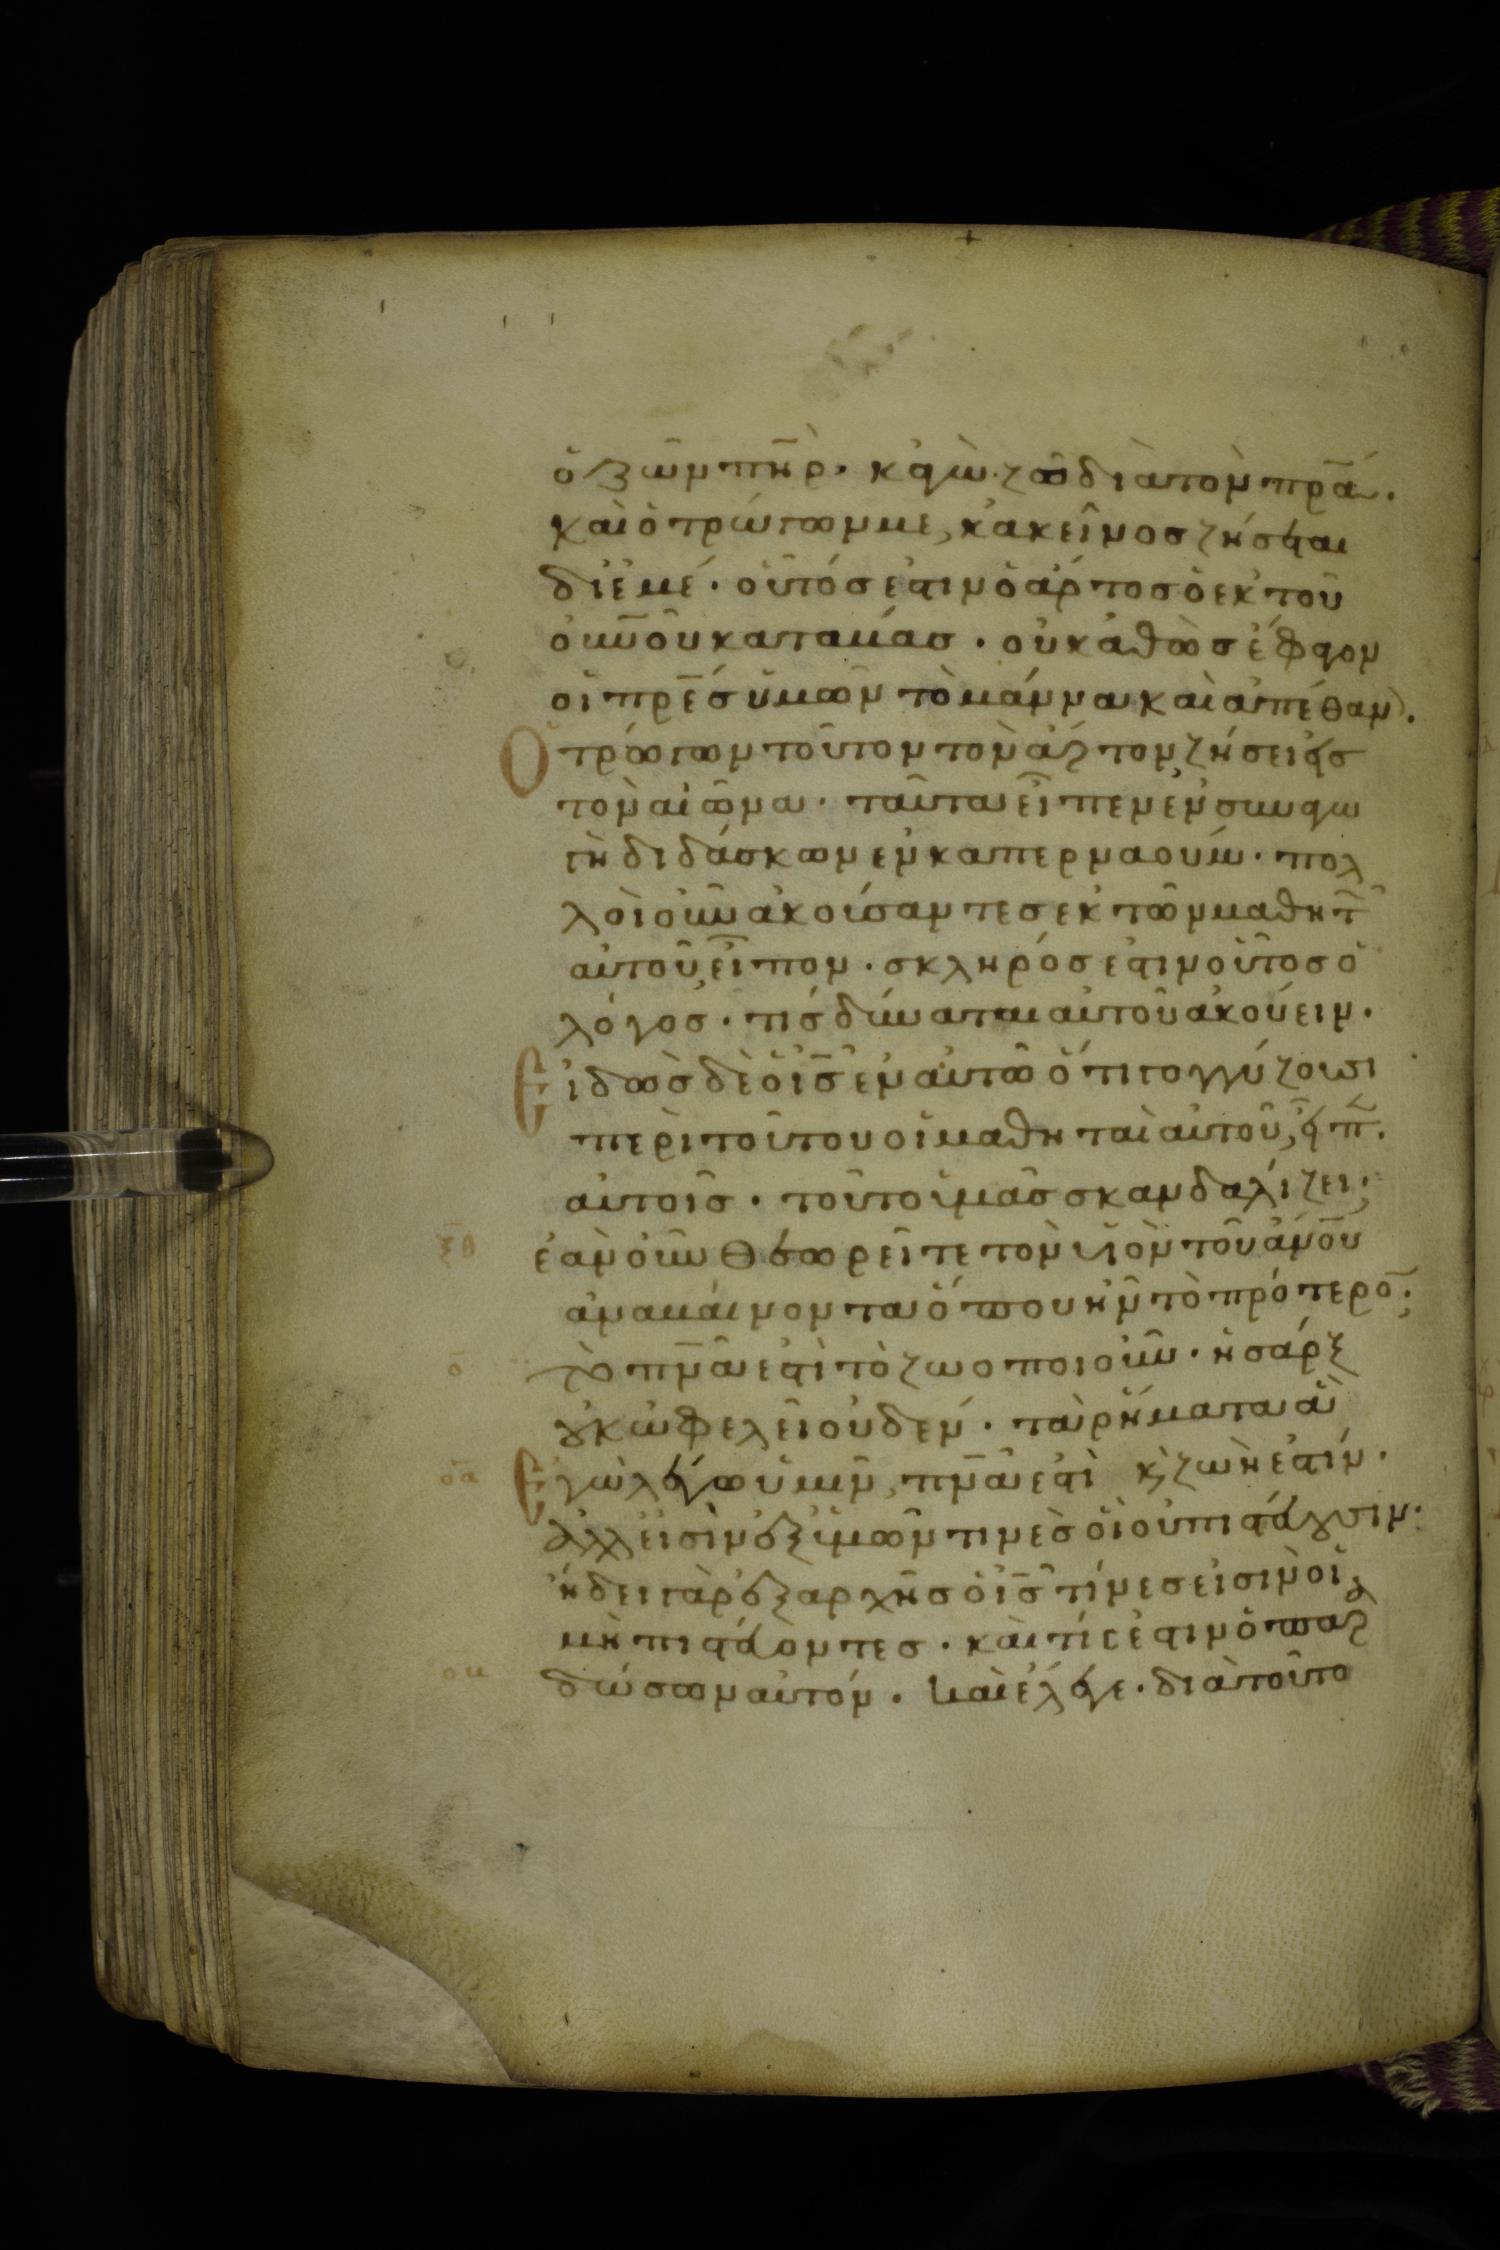 ὁ ζῶν πη̅ρ· κἀγὼ ζῶ διὰ τὸν πρ̅α·
καὶ ὁ τρώγων με, κἀκεῖνος ζήσεται
δι ἐμέ· οὗτός ἐστιν ὁ ἄρτος ὁ ἐκ τοῦ
ὀυν̅ου καταβάς· οὐ καθὼς ἔφαγον
οἱ πρ̅ες ὑμῶν τὸ μάννα καὶ ἀπέθαν·
Ὁ τρώγων τοῦτον τὸν ἄρτον ζήσει εἰς
τὸν αἰῶνα· ταῦτα εἶπεν ἐν συναγω
γῆ διδάσκων ἐν καπερναούμ· πολ
λοὶ οὖν ἀκούσαντες ἐκ τῶν μαθητ
αὐτοῦ εἶπον· σκληρός ἐστιν οὗτος ὁ
λόγος· τίς δύναται αὐτοῦ ἀκούειν·
Εἰδὼς δὲ ὁ ις̅ ἐν αὐτῶ ὅτι γογγύζουσι
περὶ τούτου οἱ μαθηταὶ αὐτοῦ, εἶπ
αὐτοῖς· τοῦτο ὑμᾶς σκανδαλίζει;
ξθ ἐὰν οὖν θεωρεῖτε τὸν υἱὸν τοῦ ἀν̅ου
ἀναβαίνοντα ὅπου ἦν τὸ πρότερο̅;
ο τὸ πν̅α ἐστὶ τὸ ζωοποιοῦν· ἡ σάρξ
οὐκ ὠφελεῖ οὐδέν· τὰ ῥήματα ἃ
οα Ἐγὼ λέγω ὑμῖν, πν̅α ἐστὶ κ ζωὴ ἐστίν·
ἀλλ εἰσὶν ἐξ ὑμῶν τινὲς οἳ οὐ πιστεύουσιν·
ἤδει γὰρ ἐξαρχῆς ὁ ις̅ τίνες εἰσὶν οἱ
μὴ πιστεύοντες· καὶ τίς ἐστιν ὁ παρα
οβ δώσων αὐτόν· καὶ ἔλεγε· διὰ τοῦτο